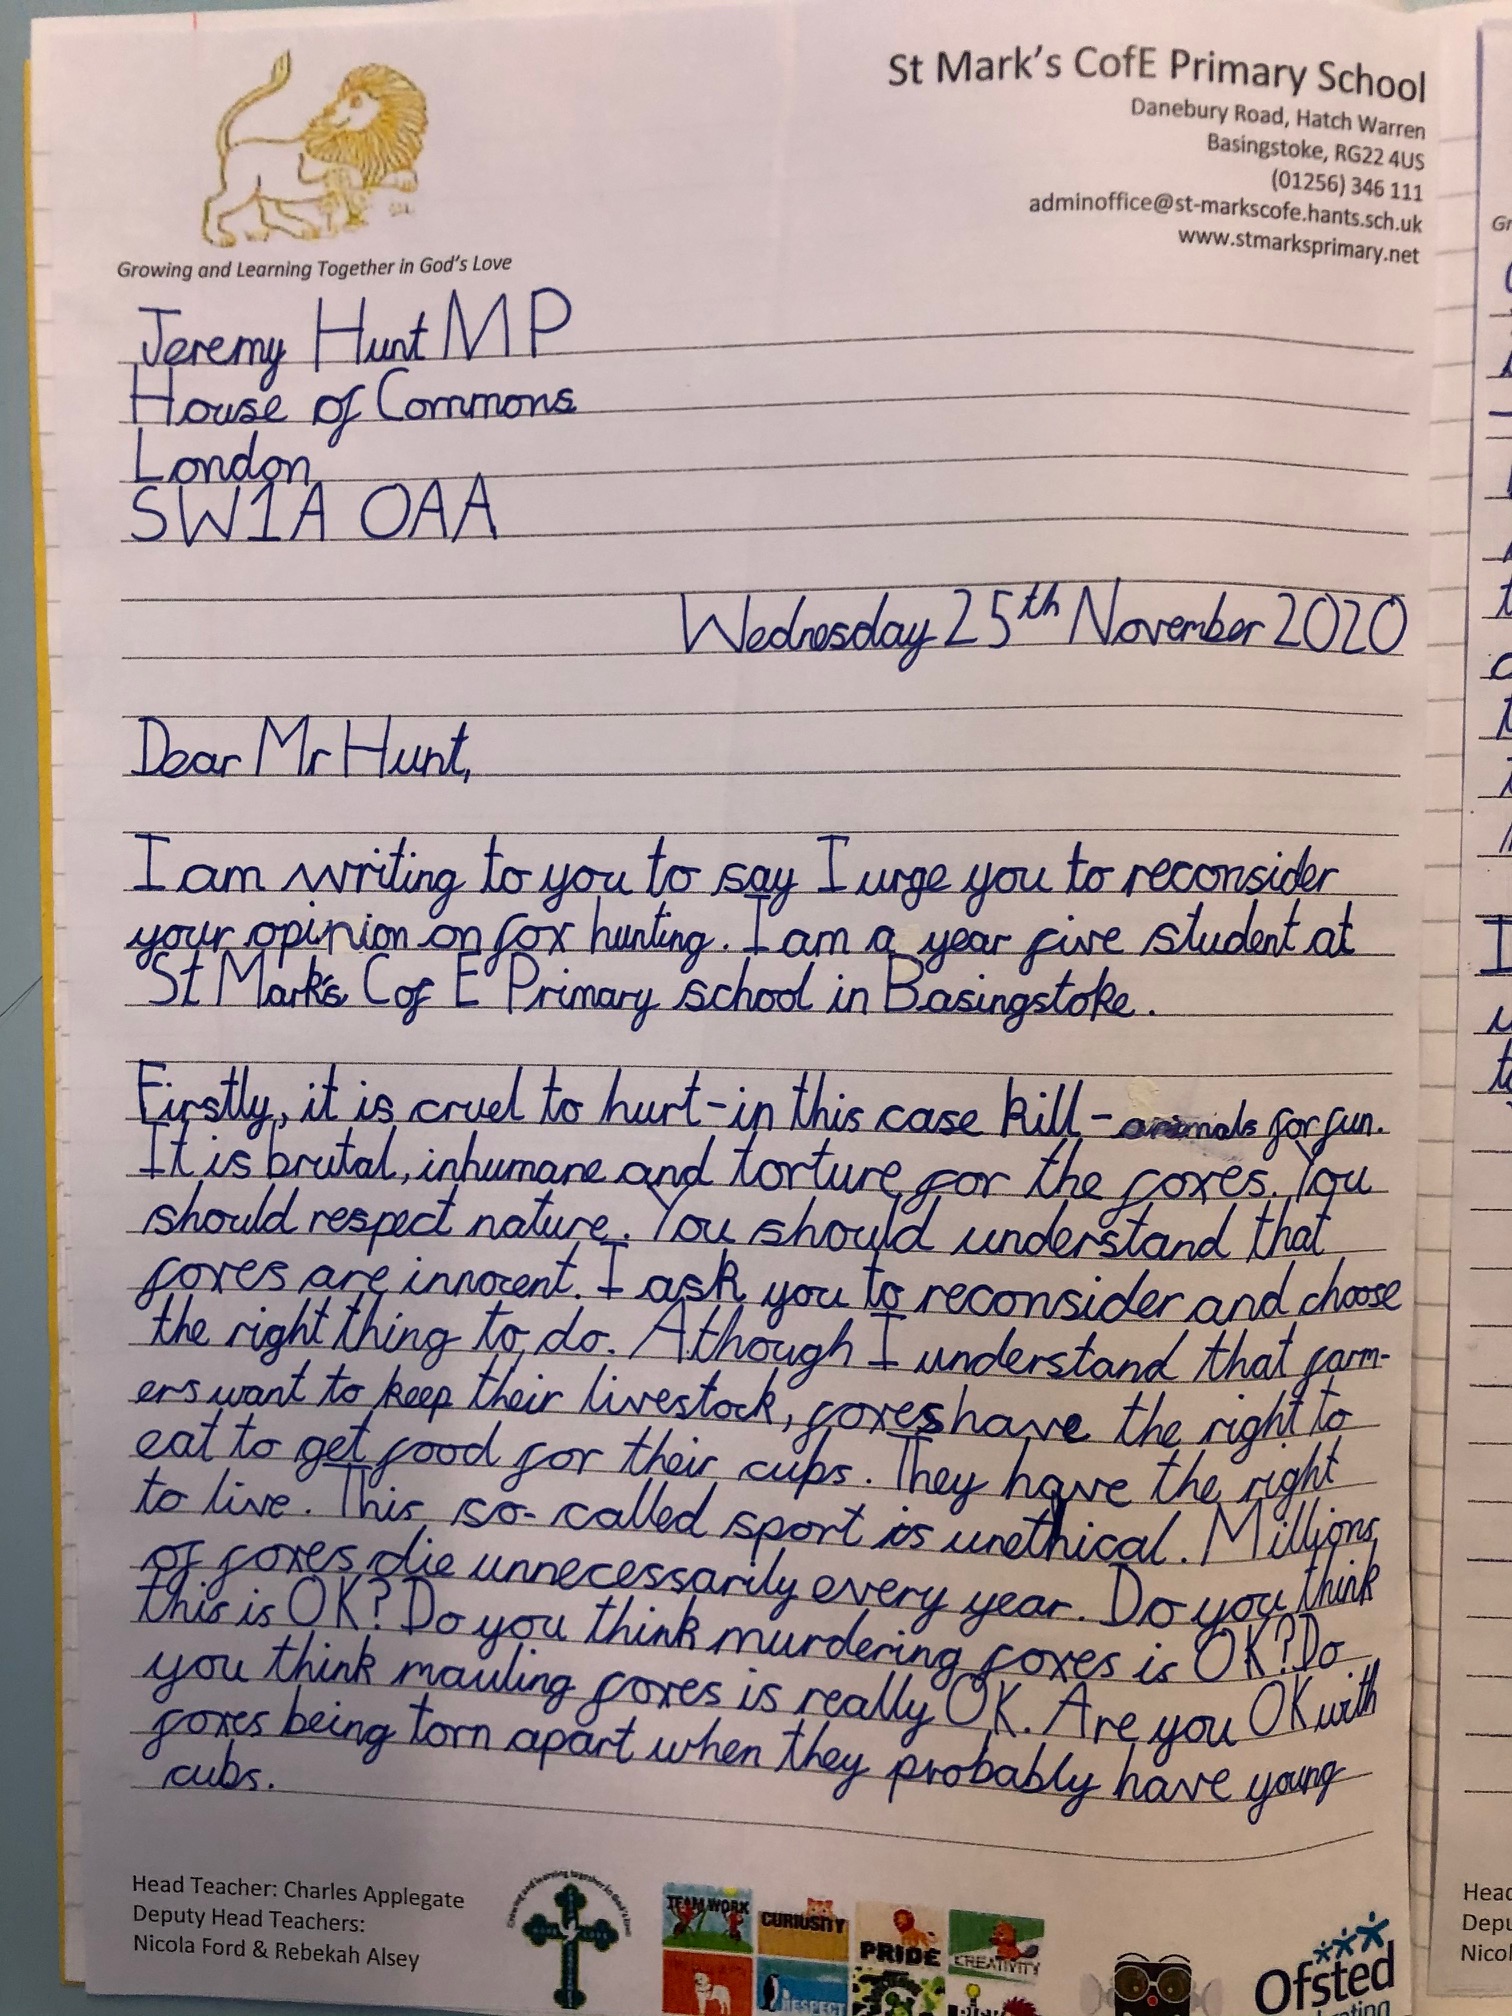 St Mark's CofE Primary School
Danebury Road, Hatch Warren
Basingstoke, RG22 4US
(01256) 346 111
adminoffice@st-markscofe.hants.sch.uk
www.stmarksprimary.net
Growing and Learning Together in God's Love
Jeremy Hunt MP
House of Commons
London
SW1A OAA
Wednesday 25th November 2020
Dear Mr Hunt,
I am writing to you to say I urge you to reconsider
your opinion on fox hunting. I am a year five student at
St Mark's C of E Primary school in Basingstoke.
Firstly, it is cruel to hurt-in this case kill-animals for fun.
It is brutal, inhumane and torture for the foxes. You
should respect nature. You should understand that
foxes are innocent. I ask you to reconsider and choose
the right thing to do. Athough I understand that farm-
ers want to keep their livestock, foxes have the right to
eat to get food for their cubs. They have the right
to live. This so-called sport is unethical. Millions
of foxes die unnecessarily every year. Do you think
this is OK? Do you think murdering foxes is OK? Do
you think mauling foxes is really OK. Are you OK with
foxes being torn apart when they probably have young
cubs.
Head Teacher: Charles Applegate
Deputy Head Teachers:
Nicola Ford & Rebekah Alsey
TEAMWORK
CURIOSITY
PRIDE
CREATIVITY
RESPECT
Ofsted